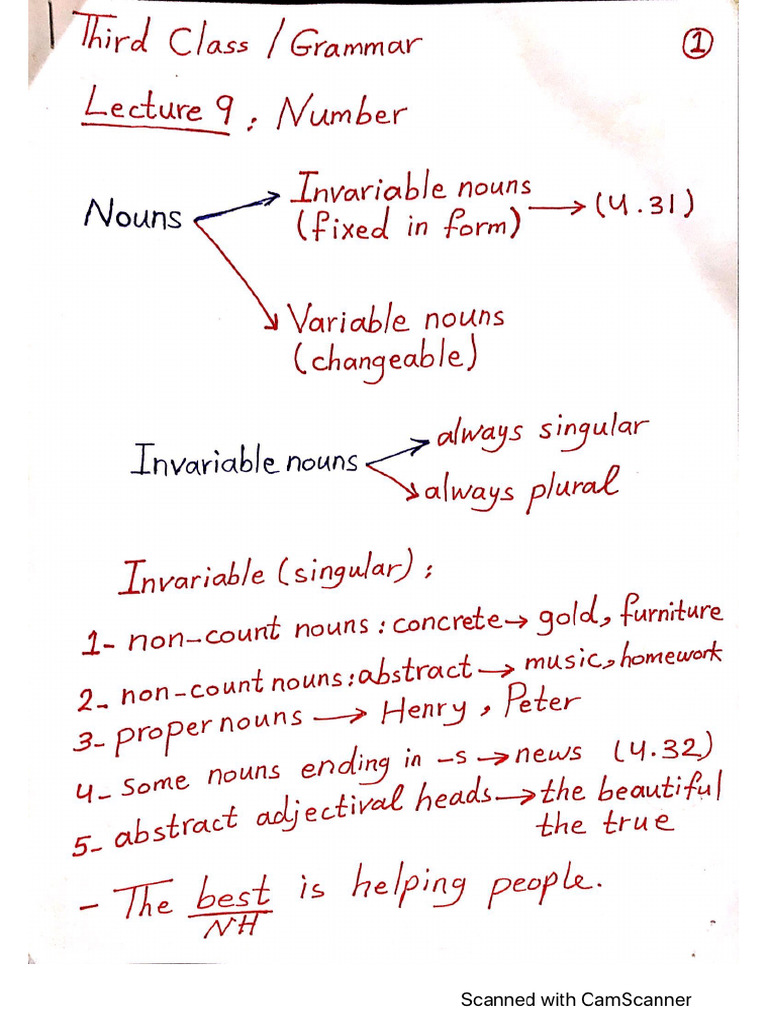 Third Class / Grammar
1
Lecture 9 : Number
Nouns
Invariable nouns
(fixed in form) → (4.31)
Variable nouns
(changeable)
Invariable nouns
always singular
always plural
Invariable (singular) :
1- non-count nouns : concrete → gold, furniture
2- non-count nouns : abstract → music, homework
3- proper nouns → Henry, Peter
4- Some nouns ending in -s → news (4.32)
5- abstract adjectival heads → the beautiful
the true
- The best is helping people.
NH
Scanned with CamScanner